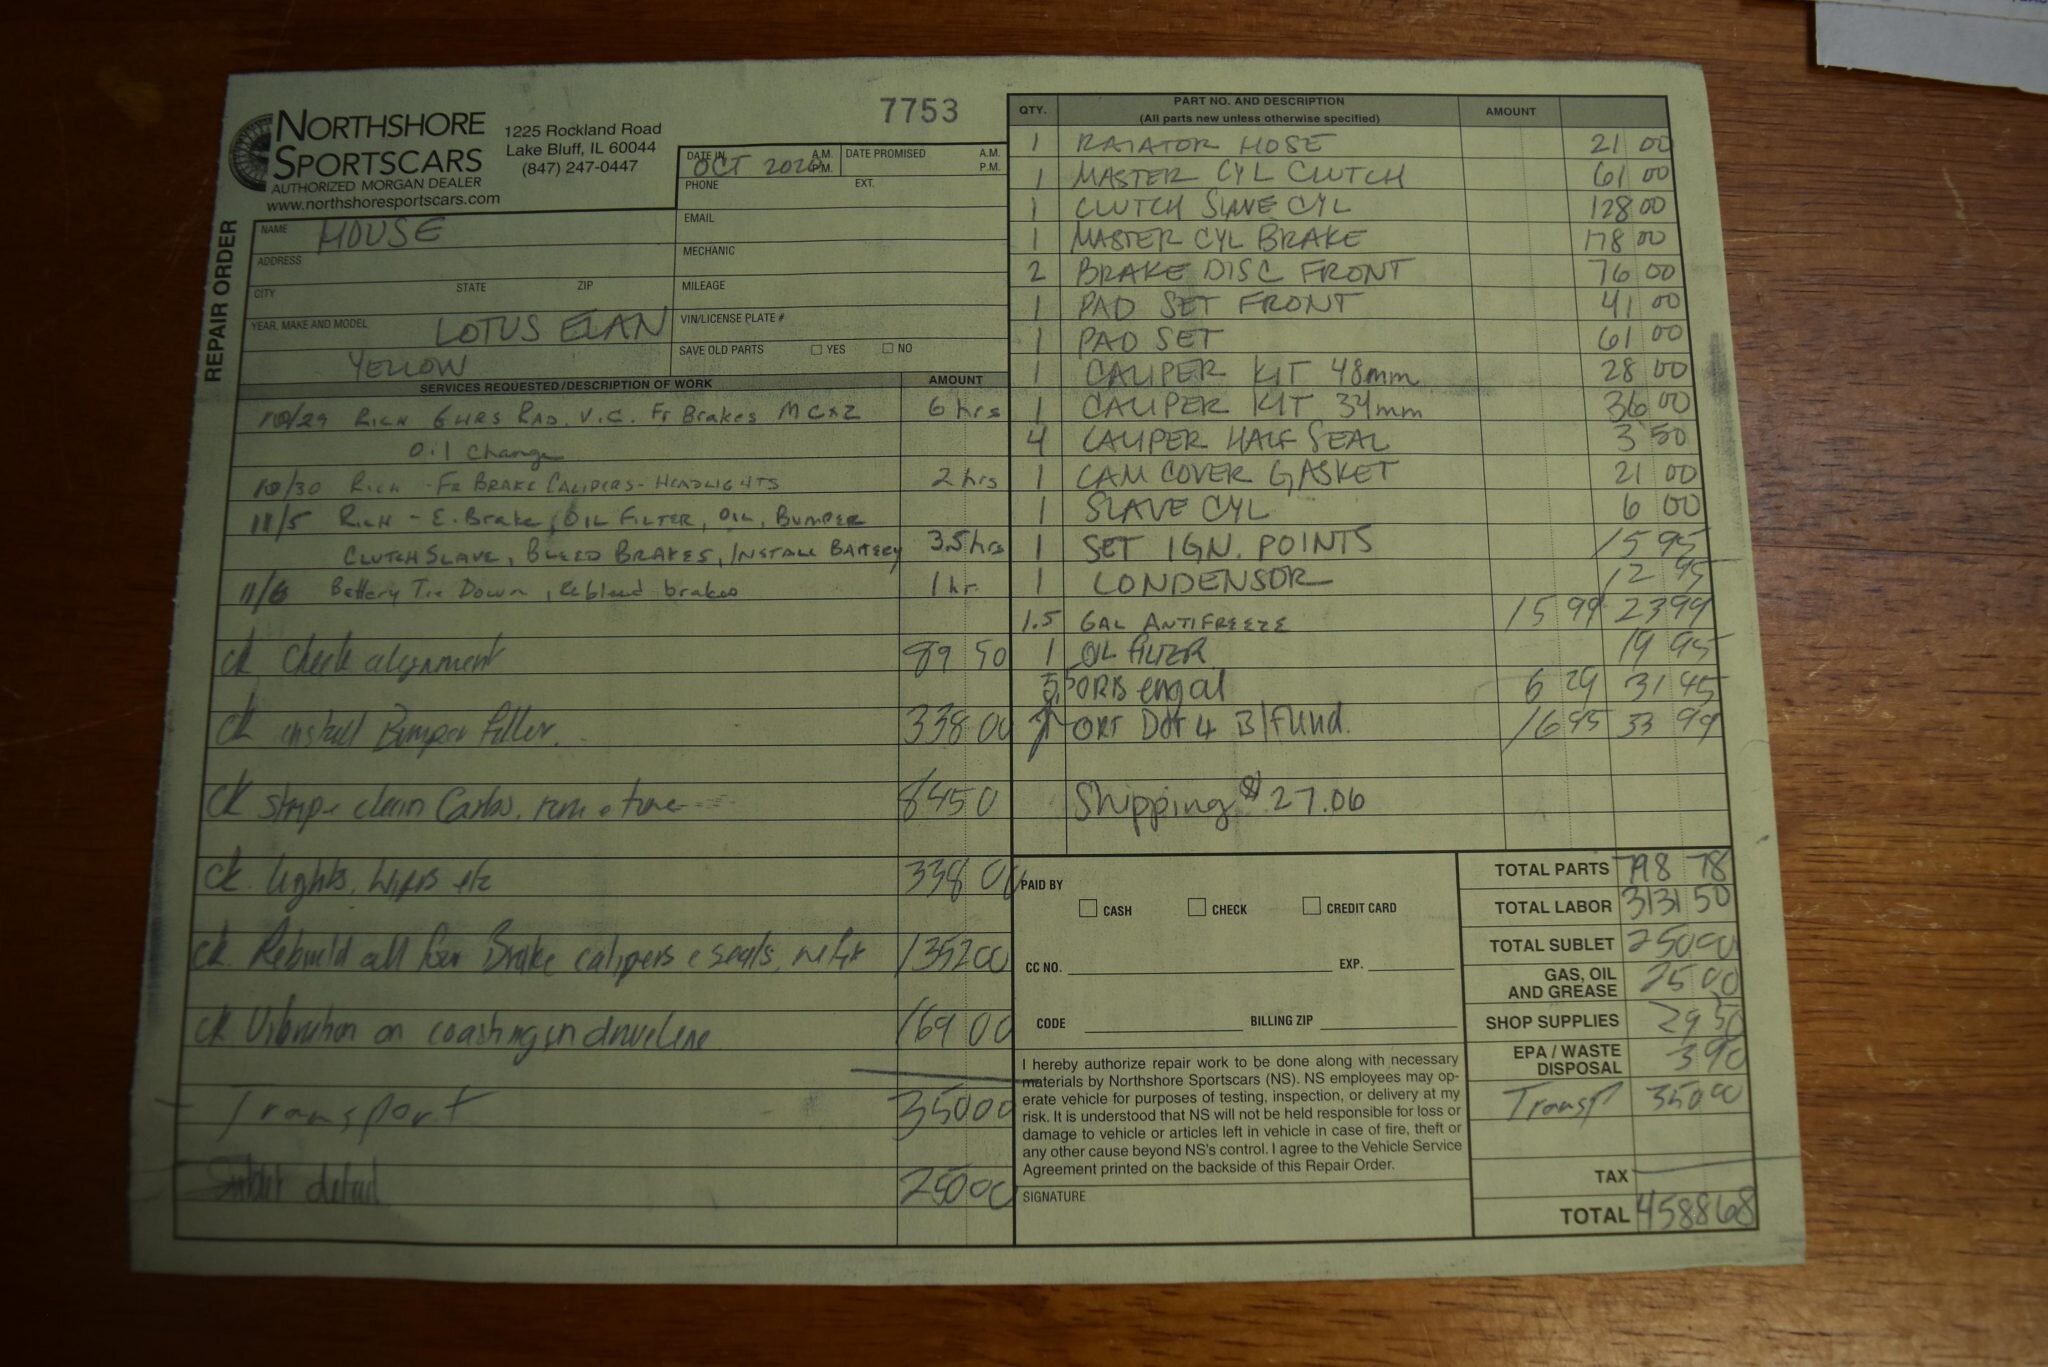 7753
NORTHSHORE
SPORTSCARS
AUTHORIZED MORGAN DEALER
www.northshoresportscars.com
1225 Rockland Road
Lake Bluff, IL 60044
(847) 247-0447
REPAIR ORDER
DATE IN OCT 2020 A.M. P.M.
DATE PROMISED A.M. P.M.
PHONE EXT.
EMAIL
MECHANIC
MILEAGE
VIN/LICENSE PLATE #
SAVE OLD PARTS YES NO
NAME HOUSE
ADDRESS
CITY STATE ZIP
YEAR, MAKE AND MODEL LOTUS ELAN
YELLOW
SERVICES REQUESTED/DESCRIPTION OF WORK AMOUNT
10/29 RICH 6 HRS RAD. V.C. Fr Brakes MCx2 6 hrs
Oil Change
10/30 RICH - FR BRAKE CALIPERS - HEADLIGHTS 2 hrs
11/5 RICH - E. Brake, OIL FILTER, OIL, BUMPER
CLUTCH SLAVE, BLEED BRAKES, INSTALL BATTERY 3.5 hrs
11/6 Battery Tie Down, Rebleed brakes 1 hr.
ck Check alignment 89 50
ck install Bumper filler. 338 00
ck strip & clean Carbs, tune 845 0
ck lights, wipers etc 338 00
ck Rebuild all four Brake calipers seals, 1352 00
ck Vibration on coasting in driveline 169 00
Transport 350 00
Sublet detail 250 00
QTY. PART NO. AND DESCRIPTION AMOUNT
(All parts new unless otherwise specified)
1 RAIATOR HOSE 21 00
1 MASTER CYL CLUTCH 61 00
1 CLUTCH SLAVE CYL 128 00
1 MASTER CYL BRAKE 178 00
2 BRAKE DISC FRONT 76 00
1 PAD SET FRONT 41 00
1 PAD SET 61 00
1 CALIPER KIT 48mm 28 00
1 CALIPER KIT 34mm 36 00
4 CALIPER HALF SEAL 3 50
1 CAM COVER GASKET 21 00
1 SLAVE CYL 6 00
1 SET IGN. POINTS 15 95
1 CONDENSOR 12 95
1.5 GAL ANTIFREEZE 15 99 23 99
1 OIL FILTER 19 95
6 29 31 45
Dot 4 B/Fluid. 16 95 33 99
Shipping $ 27.06
PAID BY
CASH CHECK CREDIT CARD
CC NO. EXP.
CODE BILLING ZIP
I hereby authorize repair work to be done along with necessary
materials by Northshore Sportscars (NS). NS employees may op-
erate vehicle for purposes of testing, inspection, or delivery at my
risk. It is understood that NS will not be held responsible for loss or
damage to vehicle or articles left in vehicle in case of fire, theft or
any other cause beyond NS's control. I agree to the Vehicle Service
Agreement printed on the backside of this Repair Order.
SIGNATURE
TOTAL PARTS 798 78
TOTAL LABOR 3131 50
TOTAL SUBLET 250 00
GAS, OIL
AND GREASE 25 00
SHOP SUPPLIES 29 50
EPA / WASTE
DISPOSAL 3 90
Transp 350 00
TAX
TOTAL 4588 68